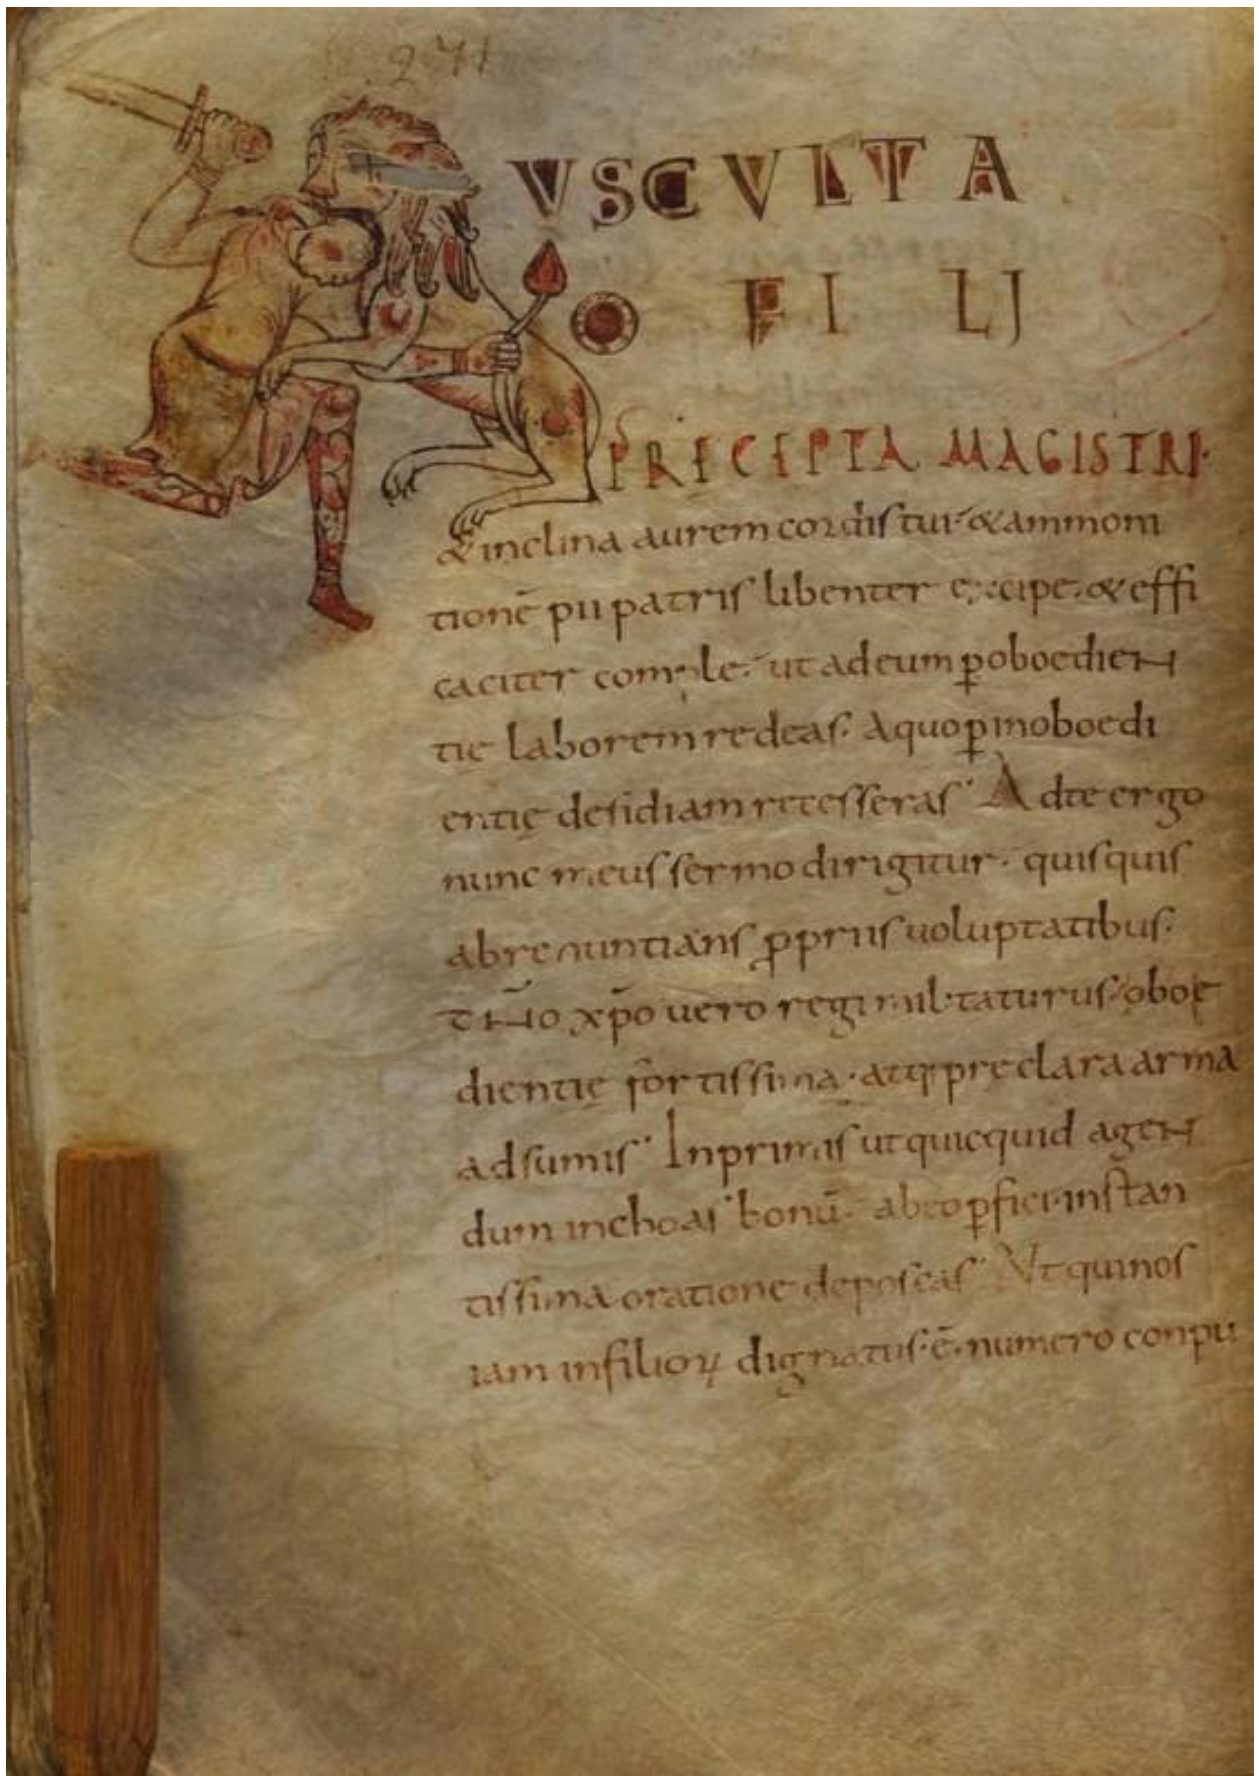 271
VSCVLTA
O FILI
PRECEPTA MAGISTRI·
& inclina aurem cordis tui· & ammoni
tionē pii patris libenter excipe· & effi
caciter comple· ut ad eum p̱ oboedien
tie laborem redeas· A quo p̱ inoboedi
entię desidiam recesseras· Ad te ergo
nunc meus sermo dirigitur· quisquis
abrenuntians ꝓpriis uoluptatibus·
dno xp̄o uero regi militaturus· oboę
dientię fortissima· atq; preclara arma
adsumis· Inprimis ut quicquid agen
dum inchoas bonū· ab eo p̱fici instan
tissima oratione deposcas· Ut qui nos
iam in filioꝝ dignatus· ē· numero conpu